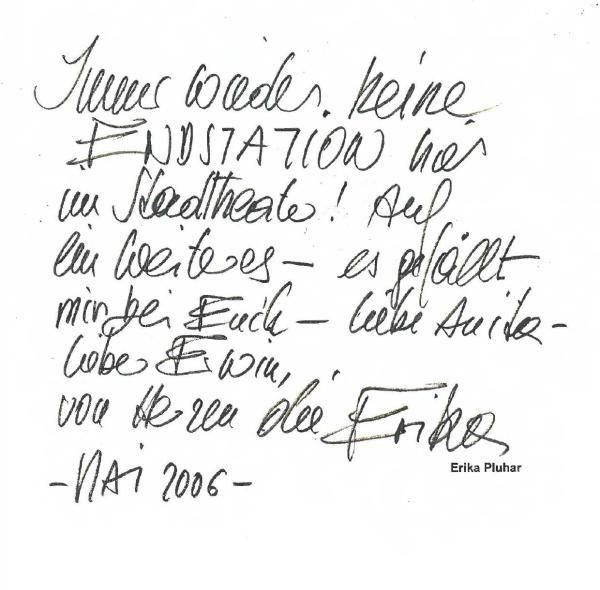 Immer wieder. keine
ENDSTATION hier
im Stadttheater! Auf
ein weiteres – es gefällt
mir bei Euch – liebe Anita –
lieber Erwin,
von Herzen die Erika
Erika Pluhar
– MAI 2006 –